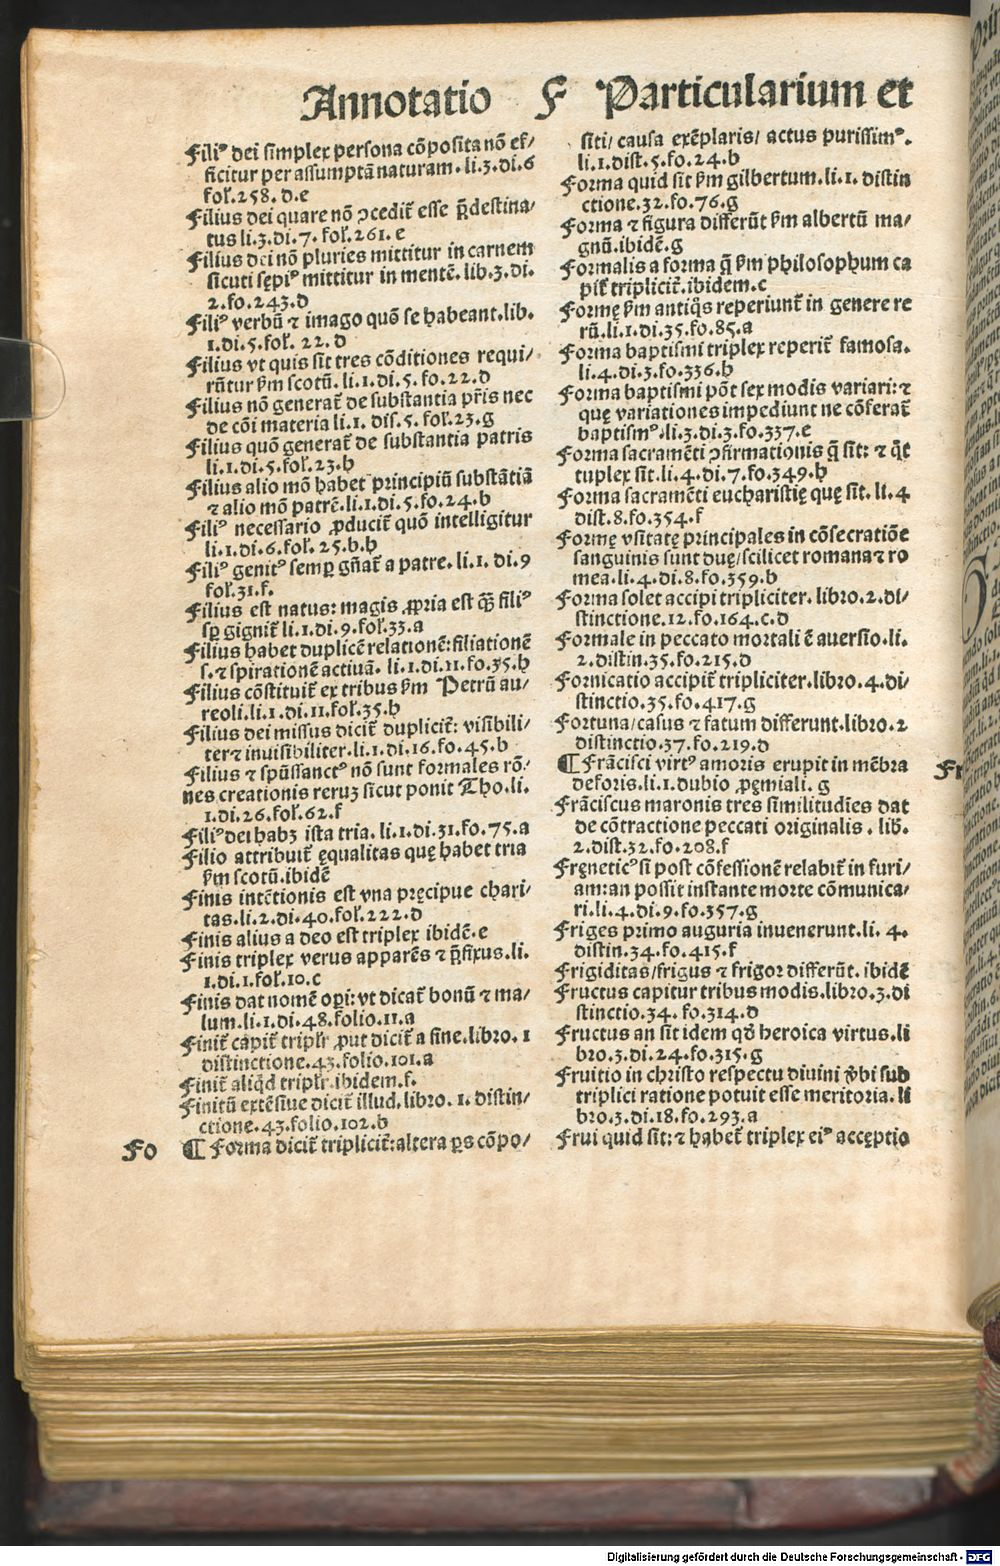 Annotatio F Particularium et
Filiꝰ dei simplex persona cõposita nõ ef/
ficitur per assumptã naturam. li.3.di.6
fol̃.258. d.e
Filius dei quare nõ ꝯcedit̃ esse p̃destina/
tus li.3.di.7. fol̃.261. e
Filius dei nõ pluries mittitur in carnem
sicuti sępiꝰ mittitur in mentẽ. lib.3.di.
2.fo.243.d
Filiꝰ verbũ ⁊ imago quõ se habeant.lib.
1.di.5.fol̃. 22. d
Filius vt quis sit tres cõditiones requi/
rũtur ẜm scotũ. li.1.di.5.fo.22.d
Filius nõ generat̃ de substantia pr̃is nec
de cõi materia li.1. dis.5.fol̃.23.g
Filius quõ generat̃ de substantia patris
li.1.di.5.fol̃.23.h
Filius alio mõ habet principiũ substãtiã
⁊ alio mõ patrẽ.li.1.di.5.fo.24.b
Filiꝰ necessario ꝓducit̃ quõ intelligitur
li.1.di.6.fol̃. 25.b.h
Filiꝰ genitꝰ semꝑ gñat̃ a patre. li.1. di.9
fol̃.31.f.
Filius est natus: magis ꝓpria est q̃ȝ filiꝰ
sꝑ gignit̃ li.1.di.9.fol̃.33.a
Filius habet duplicẽ relationẽ:filiationẽ
s.⁊ spirationẽ actiuã. li.1.di.11.fo.35.h
Filius cõstituit̃ ex tribus ẜm Petrũ au/
reoli.li.1.di.11.fol̃.35.h
Filius dei missus dicit̃ duplicit̃: visibili/
ter⁊ inuisibiliter.li.1.di.16.fo.45.b
Filius ⁊ spũssanctꝰ nõ sunt formales rõ/
nes creationis reruȝ sicut ponit Tho.li.
1.di.26.fol̃.62.f
Filiꝰ dei habȝ ista tria. li.1.di.31.fo.75.a
Filio attribuit̃ ęqualitas quę habet tria
ẜm scotũ.ibidẽ
Finis intẽtionis est vna pręcipue chari/
tas.li.2.di.40.fol̃.222.d
Finis alius a deo est triplex ibidẽ.e
Finis triplex verus apparẽs ⁊ p̃fixus.li.
1.di.1.fol̃.10.c
Finis dat nomẽ oꝑi: vt dicat̃ bonũ ⁊ ma/
lum.li.1.di.48.folio.11.a
Finit̃ capit̃ tripl̃r ꝓut dicit̃ a fine.libro.1
distinctione.43.folio.101.a
Finit̃ aliq̃d tripl̃r ibidem.f.
Finitũ extẽsiue dicit̃ illud. libro. 1. distin/
ctione.43.folio.102.b
Fo ¶ Forma dicit̃ triplicit̃:altera ꝑs cõpo/
siti/ causa exẽplaris/ actus purissimꝰ.
li.1.dist.5.fo.24.b
Forma quid sit ẜm gilbertum.li.1. distin
ctione.32.fo.76.g
Forma ⁊ figura differũt ẜm albertũ ma/
gnũ.ibidẽ.g
Formalis a forma q̃ ẜm philosophum ca
pit̃ triplicit̃.ibidem.c
Formę ẜm antiq̃s reperiunt̃ in genere re
rũ.li.1.di.35.fo.85.a
Forma baptismi triplex reperit̃ famosa.
li.4.di.3.fo.336.h
Forma baptismi põt sex modis variari:⁊
quę variationes impediunt ne cõferat̃
baptismꝰ.li.3.di.3.fo.337.e
Forma sacramẽti ꝯfirmationis q̃ sit: ⁊ q̃t
tuplex sit.li.4.di.7.fo.349.h
Forma sacramẽti eucharistię quę sit. li.4
dist.8.fo.354.f
Formę vsitatę principales in cõsecratiõe
sanguinis sunt duę/scilicet romana⁊ ro
mea.li.4.di.8.fo.359.b
Forma solet accipi tripliciter. libro.2.di/
stinctione.12.fo.164.c.d
Formale in peccato mortali ẽ auersio.li.
2.distin.35.fo.215.d
Fornicatio accipit̃ tripliciter.libro.4.di/
stinctio.35.fo.417.g
Fortuna/casus ⁊ fatum differunt.libro.2
distinctio.37.fo.219.d
¶ Frãcisci virtꝰ amoris erupit in mẽbra Fr
deforis.li.1.dubio ꝓęmiali. g
Frãciscus maronis tres similitudĩes dat
de cõtractione peccati originalis. lib̃.
2.dist.32.fo.208.f
Fręneticꝰ si post cõfessionẽ relabit̃ in furi/
am:an possit instante morte cõmunica/
ri.li.4.di.9.fo.357.g
Friges primo auguria inuenerunt.li. 4.
distin.34.fo.415.f
Frigiditas/frigus ⁊ frigor differũt. ibidẽ
Fructus capitur tribus modis.libro.3.di
stinctio.34. fo.314.d
Fructus an sit idem qđ heroica virtus.li
bro.3.di.24.fo.315.g
Fruitio in christo respectu diuini ṽbi sub
triplici ratione potuit esse meritoria.li
bro.3.di.18.fo.293.a
Frui quid sit:⁊ habet̃ triplex eiꝰ accęptio
Digitalisierung gefördert durch die Deutsche Forschungsgemeinschaft - DFG